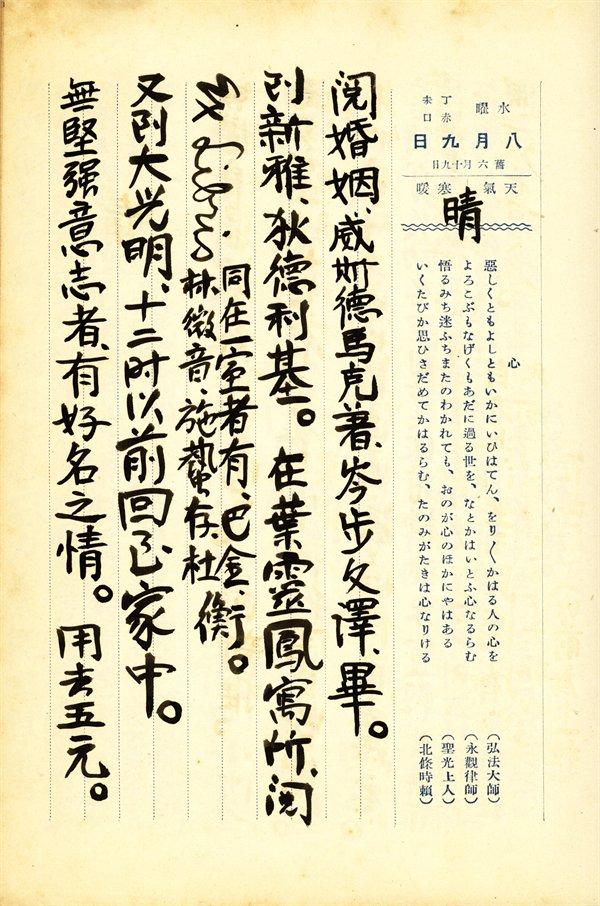 水曜
丁未
赤口
八月九日
舊六月十九日
天氣 寒暖
晴
心
惡しくともよしともいかにいひはてん、をり〱かはる人の心を (弘法大師)
よろこぶもなげくもあだに過る世を、なとかはいとふ心なるらむ (永觀律師)
悟るみち迷ふちまたのわかれても、おのが心のほかにやはある (聖光上人)
いくたびか思ひさだめてかはるらむ、たのみがたきは心なりける (北條時頼)
閱婚姻、威斯德馬克著、岑步文澤、畢。
到新雅、狄德利基。在葉靈鳳寓所、閱
同在一室者有、巴金、
林微音、施蟄存、杜衡。
又到大光明、十二时以前回到家中。
無堅强意志者、有好名之情。用去五元。